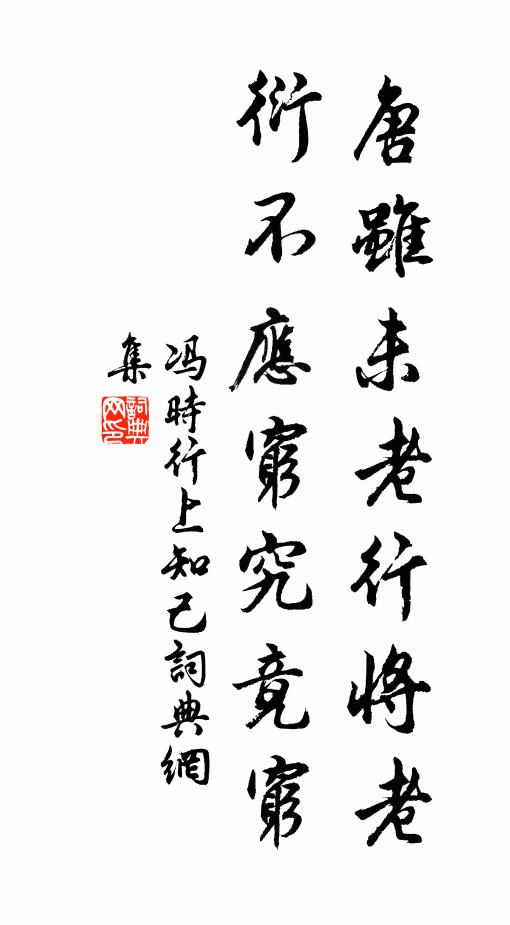 唐雖未老行將老
衍不應窮究竟窮
冯時行上知己詞典網
集
詞典网印